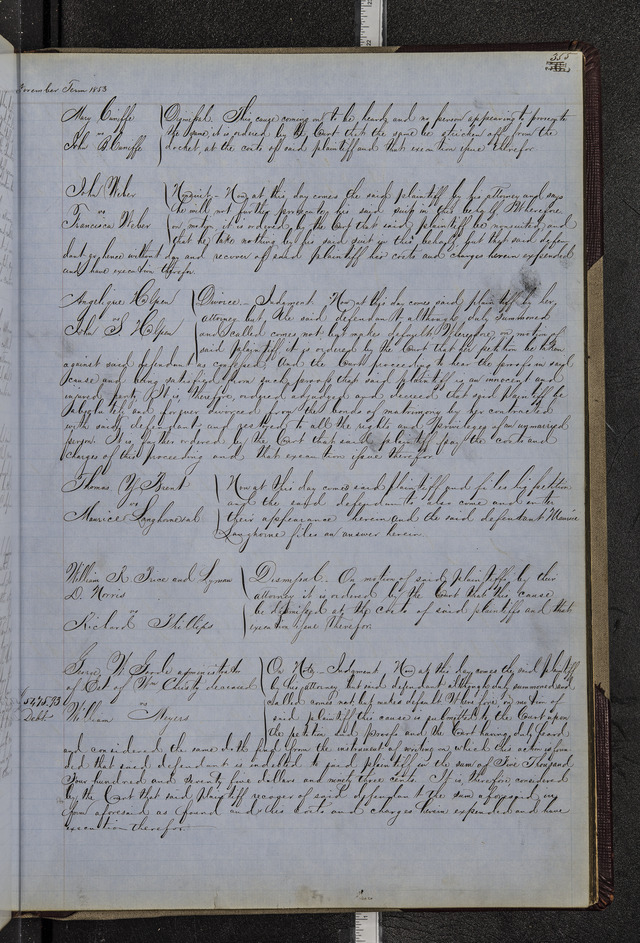 355
November Term 1853
Mary Cuniffe
vs
John B Cuniffe
Dismissal. This cause coming on to be heard and no person appearing to prosecute
the same, it is ordered by the Court that the same be stricken off from the
docket, at the costs of said plaintiff and that execution issue therefor.
John Weber
vs
Francisca Weber
Nonsuit - Now at this day comes the said plaintiff by his attorney and says
he will not further prosecute his said suit in this behalf. Wherefore
on motion it is ordered by the Court that said plaintiff be nonsuited and
that he take nothing by his said suit in this behalf but that said defen
dant go hence without day and recover of said plaintiff her costs and charges herein expended
and have execution therefor.
Angelique
vs
John S.
Divorce - Judgment. Now at this day comes said plaintiff by her
attorney but the said defendant although duly summoned
and called comes not but makes default. Wherefore on motion of
said plaintiff it is ordered by the Court that her petition be taken
against said defendant as confessed. And the Court proceeding to hear the proofs in said
cause and being satisfied from such proofs that said plaintiff is an innocent and
injured party, It is, therefore, ordered adjudged and decreed that said plaintiff be
absolutely and forever divorced from the bonds of matrimony by her contracted
with said defendant and restored to all the rights and privileges of an unmarried
person. It is further ordered by the Court that said plaintiff pay the costs and
charges of this proceeding and that execution issue therefor.
Thomas Y. Brent
vs
Maurice Langhorne et al
Now at this day comes said plaintiff and files his petition
and the said defendants also come and enter
their appearance herein and the said defendant Maurice
Langhorne files an answer herein.
William R. Price and Lyman
D. Norris
vs
Richard Phillips
Dismissal. On motion of said plaintiffs, by their
attorney it is ordered by the Court that this cause
be dismissed at the costs of said plaintiffs and that
execution issue therefor.
W. administrator
of Est of Wm Christy deceased
vs
William Meyers
$5475.93
Debt
On Note - Judgment. Now at this day comes the said plaintiff
by his attorney but said defendant although duly summoned and
called comes not but makes default. Wherefore, on motion of
said plaintiff this cause is submitted to the Court upon
the petition and proofs and the Court having duly heard
and considered the same doth find from the instrument of writing on which this action is foun
ded that said defendant is indebted to said plaintiff in the sum of Five Thousand
Four hundred and seventy five dollars and ninety three cents. It is, therefore, considered
by the Court that said plaintiff recover of said defendant the sum aforesaid in
form aforesaid as found and his costs and charges herein expended and have
execution therefor.